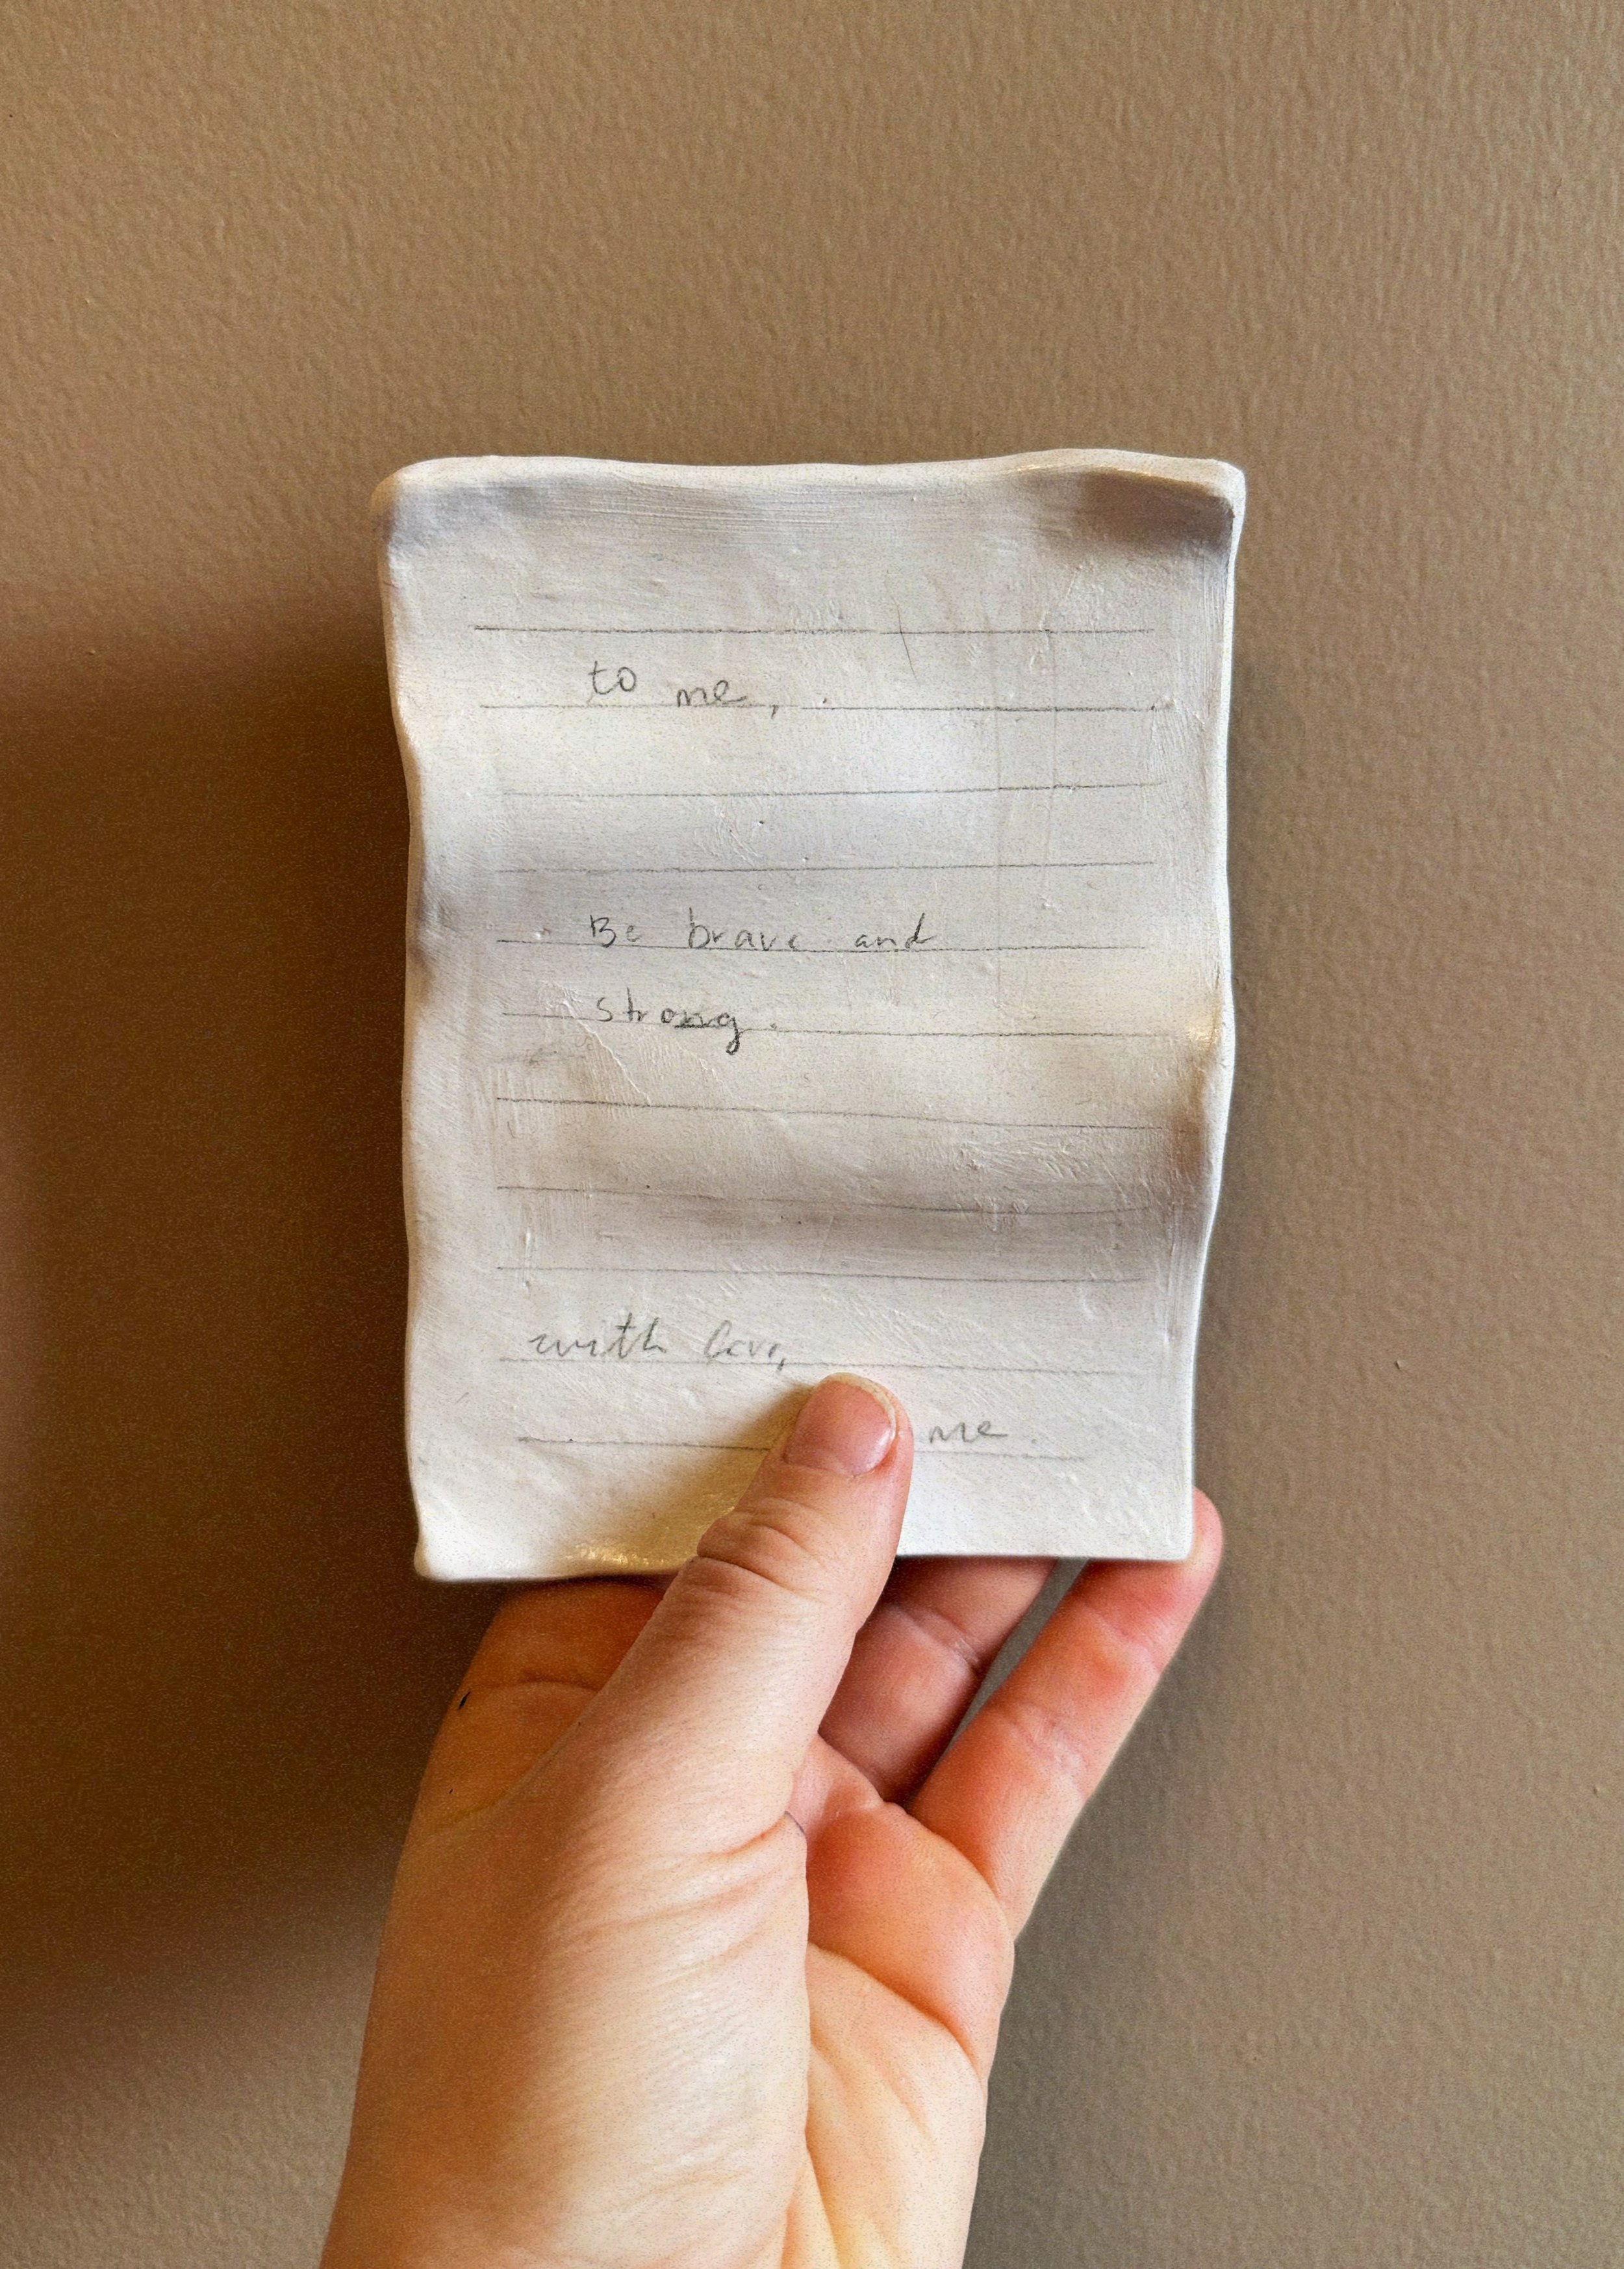 to me,
Be brave and
strong.
with love,
me.